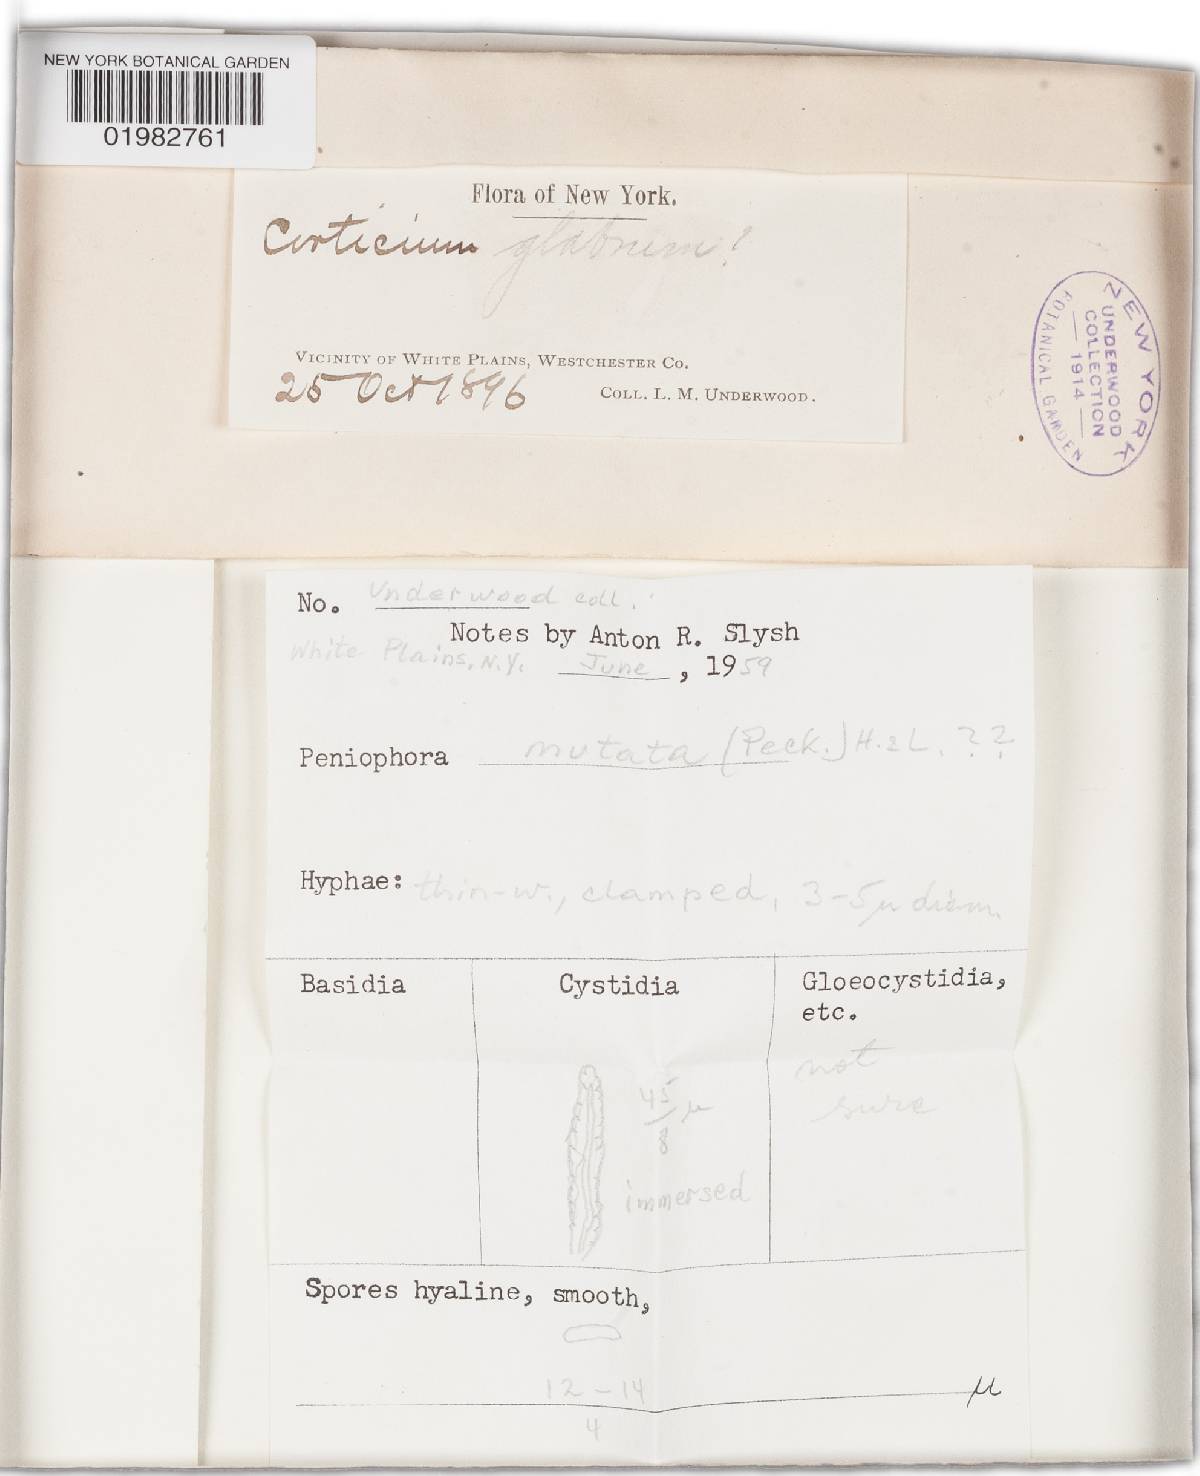 NEW YORK BOTANICAL GARDEN
01982761
Flora of New York.
Corticium glabrum?
VICINITY OF WHITE PLAINS, WESTCHESTER CO.
25 Oct 1896 COLL. L. M. UNDERWOOD.
NEW YORK
UNDERWOOD
COLLECTION
— 1914 —
BOTANICAL GARDEN
No. Underwood coll.
Notes by Anton R. Slysh
White Plains, N.Y. June, 1959
Peniophora mutata (Peck.) H. & L. ??
Hyphae: thin-w., clamped, 3-5μ diam.
Basidia Cystidia Gloeocystidia,
etc.
not
sure
45
/ μ
8
immersed
Spores hyaline, smooth,
12-14
μ
4